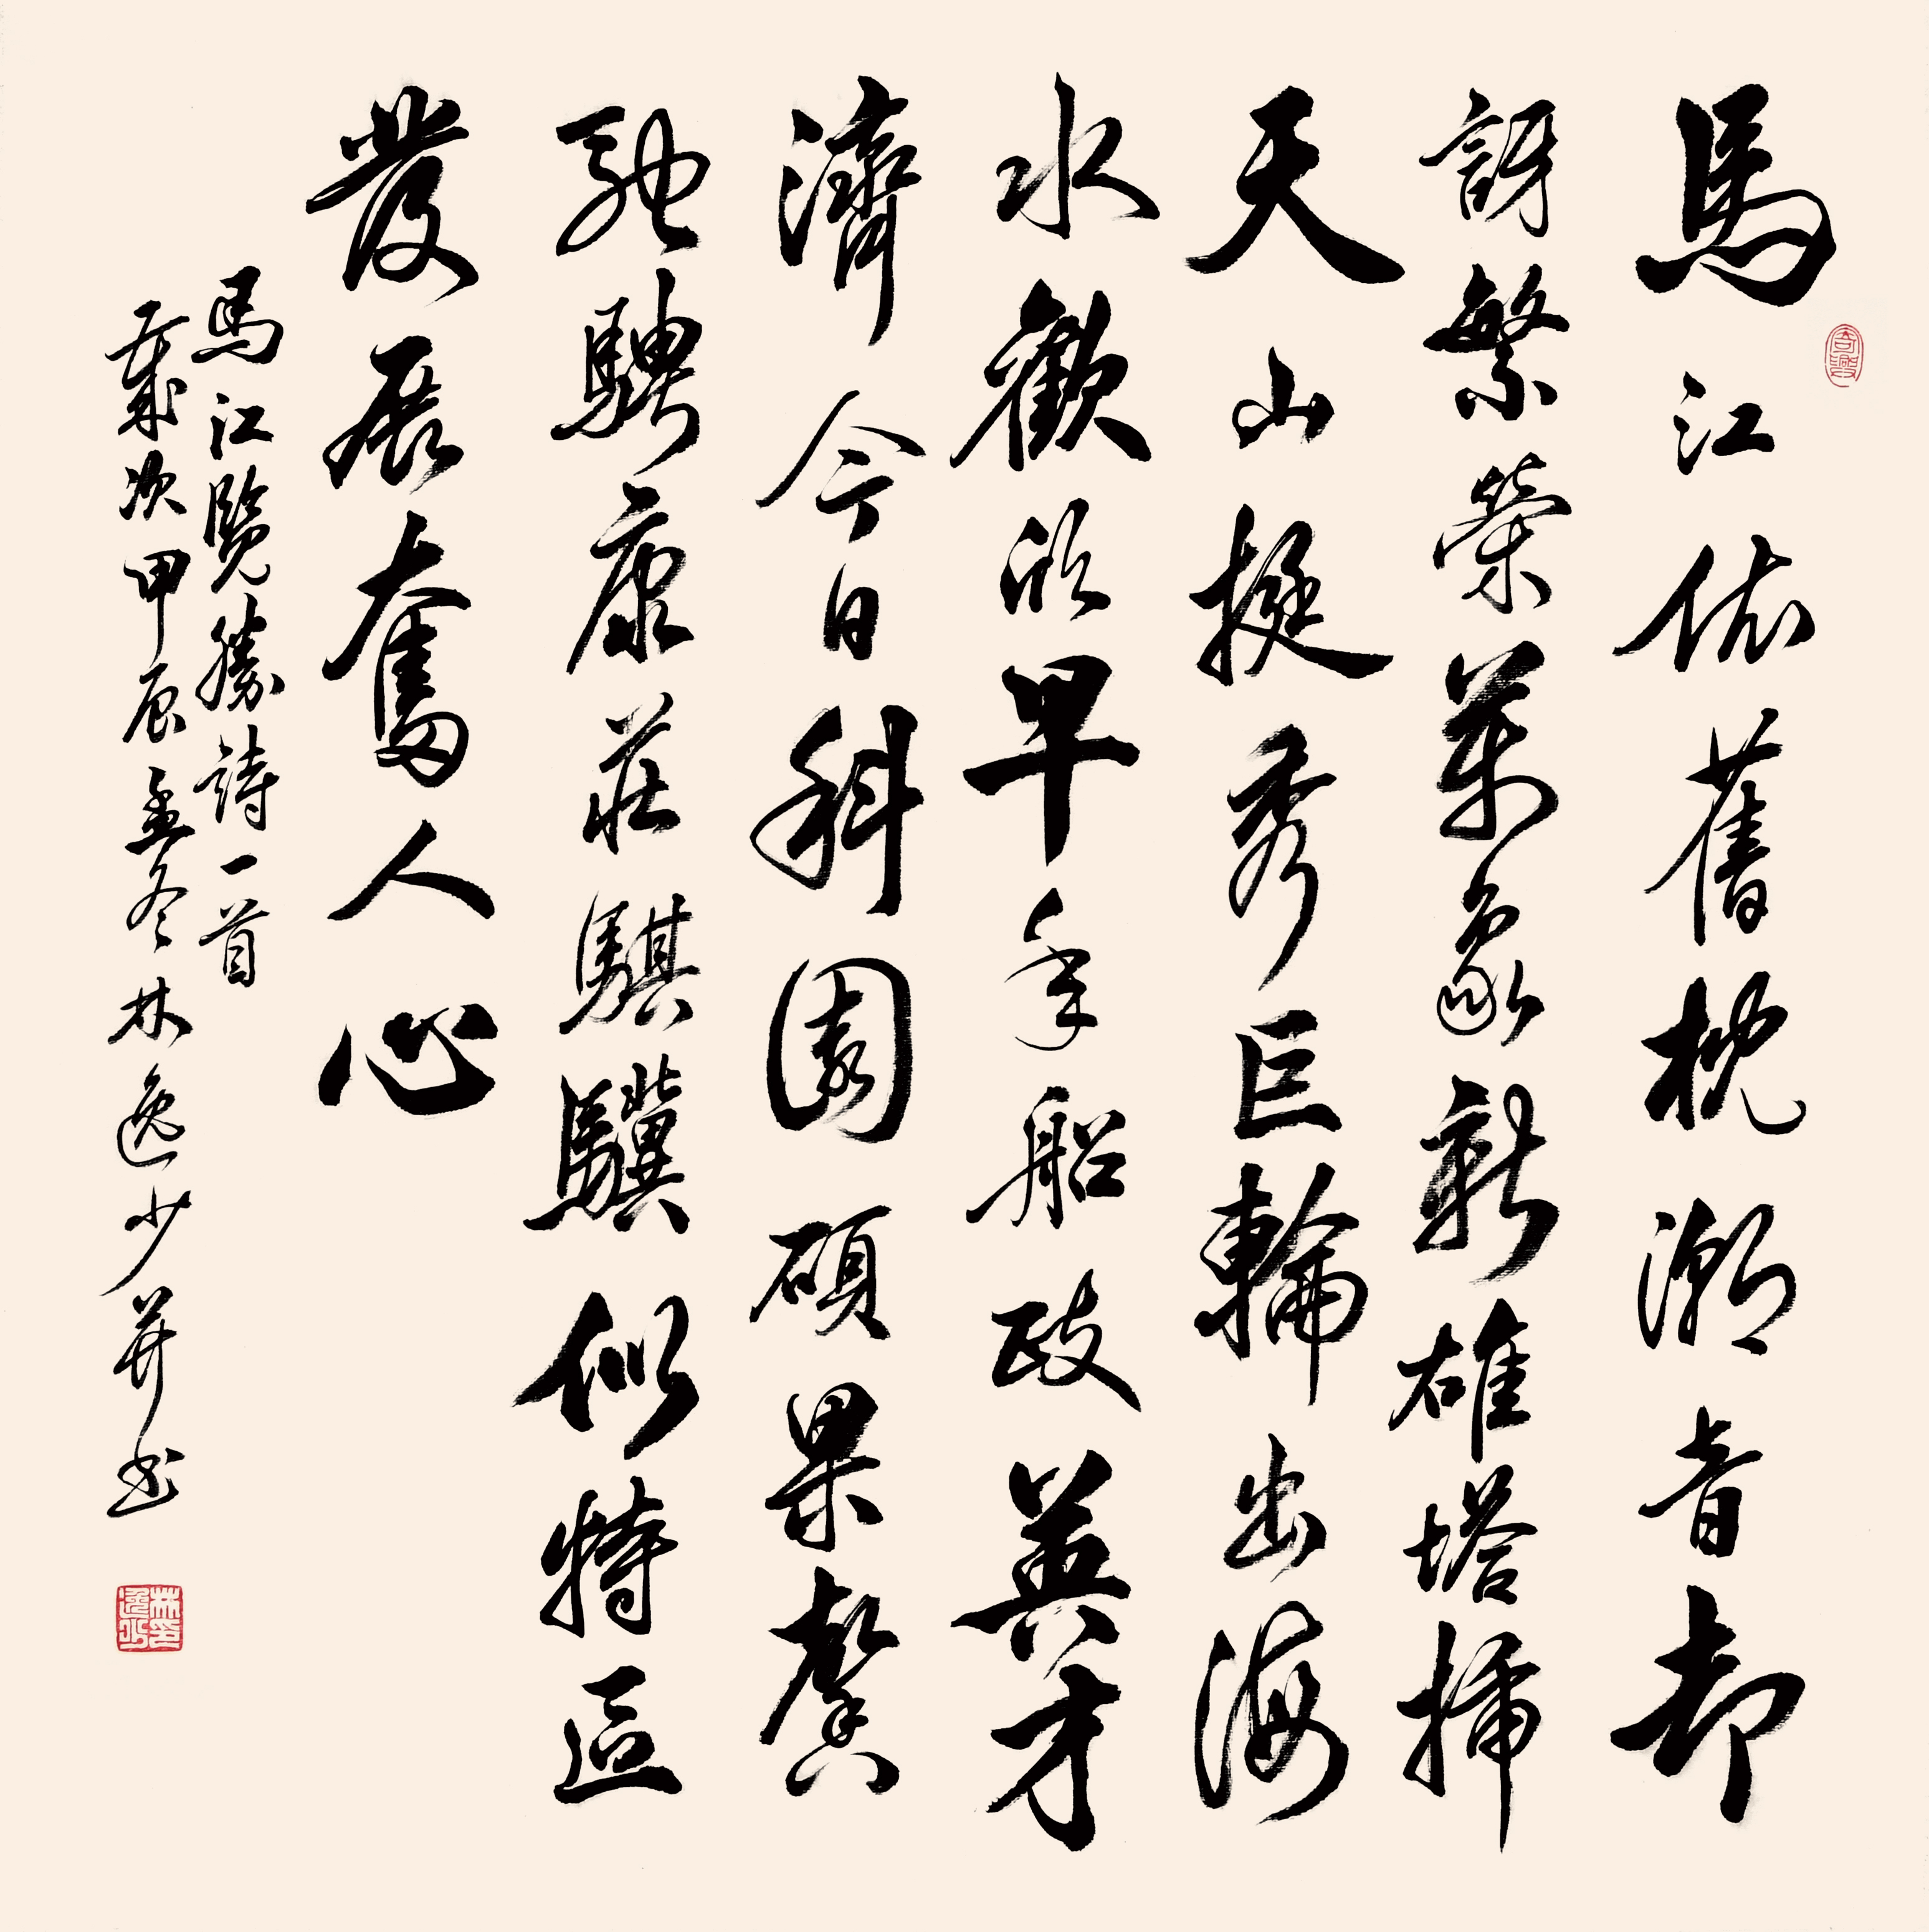 馬江依舊枕潮音却
訝繁榮萬象新雄塔插
天山挺秀巨輪出海
水歡欣早年船政英才
濟今日科園碩果馨
馳騁康莊騏驥似特區
發展奮人心
馬江覽勝詩一首
歲次甲辰孟冬林逸少并书
林印逸少